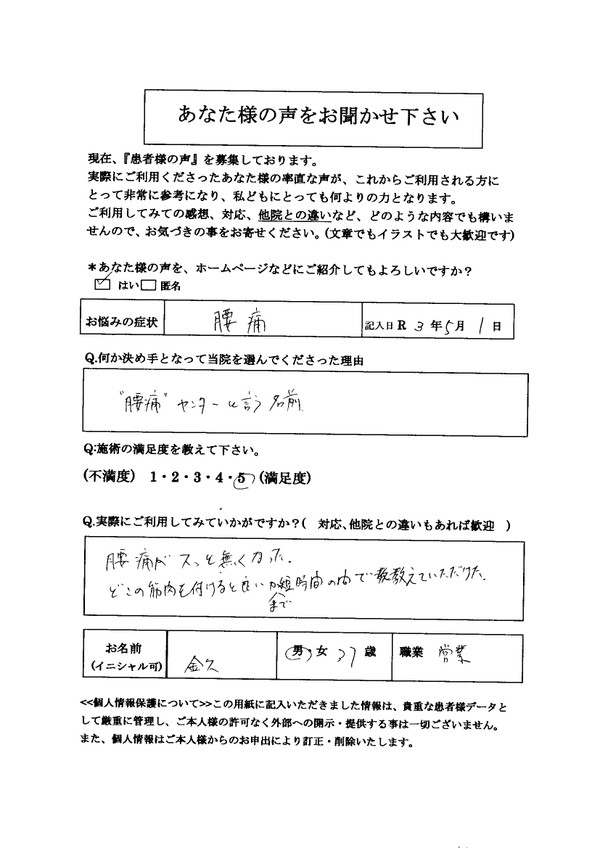 あなた様の声をお聞かせ下さい
現在、『患者様の声』を募集しております。
実際にご利用くださったあなた様の率直な声が、これからご利用される方に
とって非常に参考になり、私どもにとっても何よりの力となります。
ご利用してみての感想、対応、他院との違いなど、どのような内容でも構いま
せんので、お気づきの事をお寄せください。(文章でもイラストでも大歓迎です)
*あなた様の声を、ホームページなどにご紹介してもよろしいですか？
はい 匿名
お悩みの症状 腰痛 記入日R 3 年5月 1 日
Q.何か決め手となって当院を選んでくださった理由
"腰痛"センターと言う名前
Q:施術の満足度を教えて下さい。
(不満度) 1・2・3・4・5 (満足度)
Q.実際にご利用してみていかがですか？( 対応、他院との違いもあれば歓迎 )
腰痛がスッと無くなった.
どこの筋肉を付けると良いか短時間の中で教えていただけた.
まで
お名前 金久 男・女 37 歳 職業 営業
(イニシャル可)
<<個人情報保護について>>この用紙に記入いただきました情報は、貴重な患者様データと
して厳重に管理し、ご本人様の許可なく外部への開示・提供する事は一切ございません。
また、個人情報はご本人様からのお申出により訂正・削除いたします。